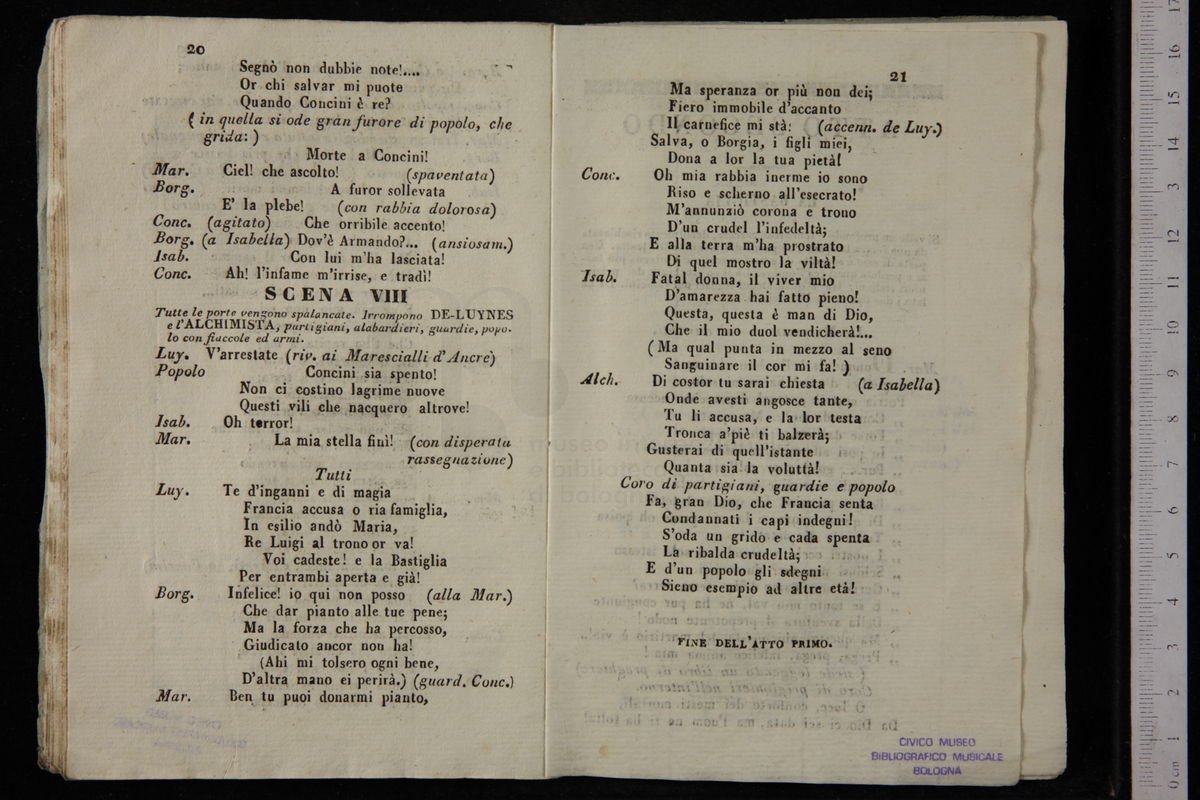 20
Segnò non dubbie note!....
Or chi salvar mi puote
Quando Concini è re?
( in quella si ode gran furore di popolo, che
grida: )
Morte a Concini!
Mar. Ciel! che ascolto! (spaventata)
Borg. A furor sollevata
E' la plebe! (con rabbia dolorosa)
Conc. (agitato) Che orribile accento!
Borg. (a Isabella) Dov'è Armando?... (ansiosam.)
Isab. Con lui m'ha lasciata!
Conc. Ah! l'infame m'irrise, e tradì!
SCENA VIII
Tutte le porte vengono spalancate. Irrompono DE-LUYNES
e l'ALCHIMISTA, partigiani, alabardieri, guardie, popo-
lo con fiaccole ed armi.
Luy. V'arrestate (riv. ai Marescialli d'Ancre)
Popolo Concini sia spento!
Non ci costino lagrime nuove
Questi vili che nacquero altrove!
Isab. Oh terror!
Mar. La mia stella finì! (con disperata
rassegnazione)
Tutti
Luy. Te d'inganni e di magia
Francia accusa o ria famiglia,
In esilio andò Maria,
Re Luigi al trono or va!
Voi cadeste! e la Bastiglia
Per entrambi aperta e già!
Borg. Infelice! io qui non posso (alla Mar.)
Che dar pianto alle tue pene;
Ma la forza che ha percosso,
Giudicato ancor non ha!
(Ahi mi tolsero ogni bene,
D'altra mano ei perirà.) (guard. Conc.)
Mar. Ben tu puoi donarmi pianto,
21
Ma speranza or più non dei;
Fiero immobile d'accanto
Il carnefice mi stà: (accenn. de Luy.)
Salva, o Borgia, i figli miei,
Dona a lor la tua pietà!
Conc. Oh mia rabbia inerme io sono
Riso e scherno all'esecrato!
M'annunziò corona e trono
D'un crudel l'infedeltà;
E alla terra m'ha prostrato
Di quel mostro la viltà!
Isab. Fatal donna, il viver mio
D'amarezza hai fatto pieno!
Questa, questa è man di Dio,
Che il mio duol vendicherà!...
(Ma qual punta in mezzo al seno
Sanguinare il cor mi fa! )
Alch. Di costor tu sarai chiesta (a Isabella)
Onde avesti angosce tante,
Tu li accusa, e la lor testa
Tronca a'piè ti balzerà;
Gusterai di quell'istante
Quanta sia la voluttà!
Coro di partigiani, guardie e popolo
Fa, gran Dio, che Francia senta
Condannati i capi indegni!
S'oda un grido e cada spenta
La ribalda crudeltà;
E d'un popolo gli sdegni
Sieno esempio ad altre età!
FINE DELL'ATTO PRIMO.
CIVICO MUSEO
BIBLIOGRAFICO MUSICALE
BOLOGNA